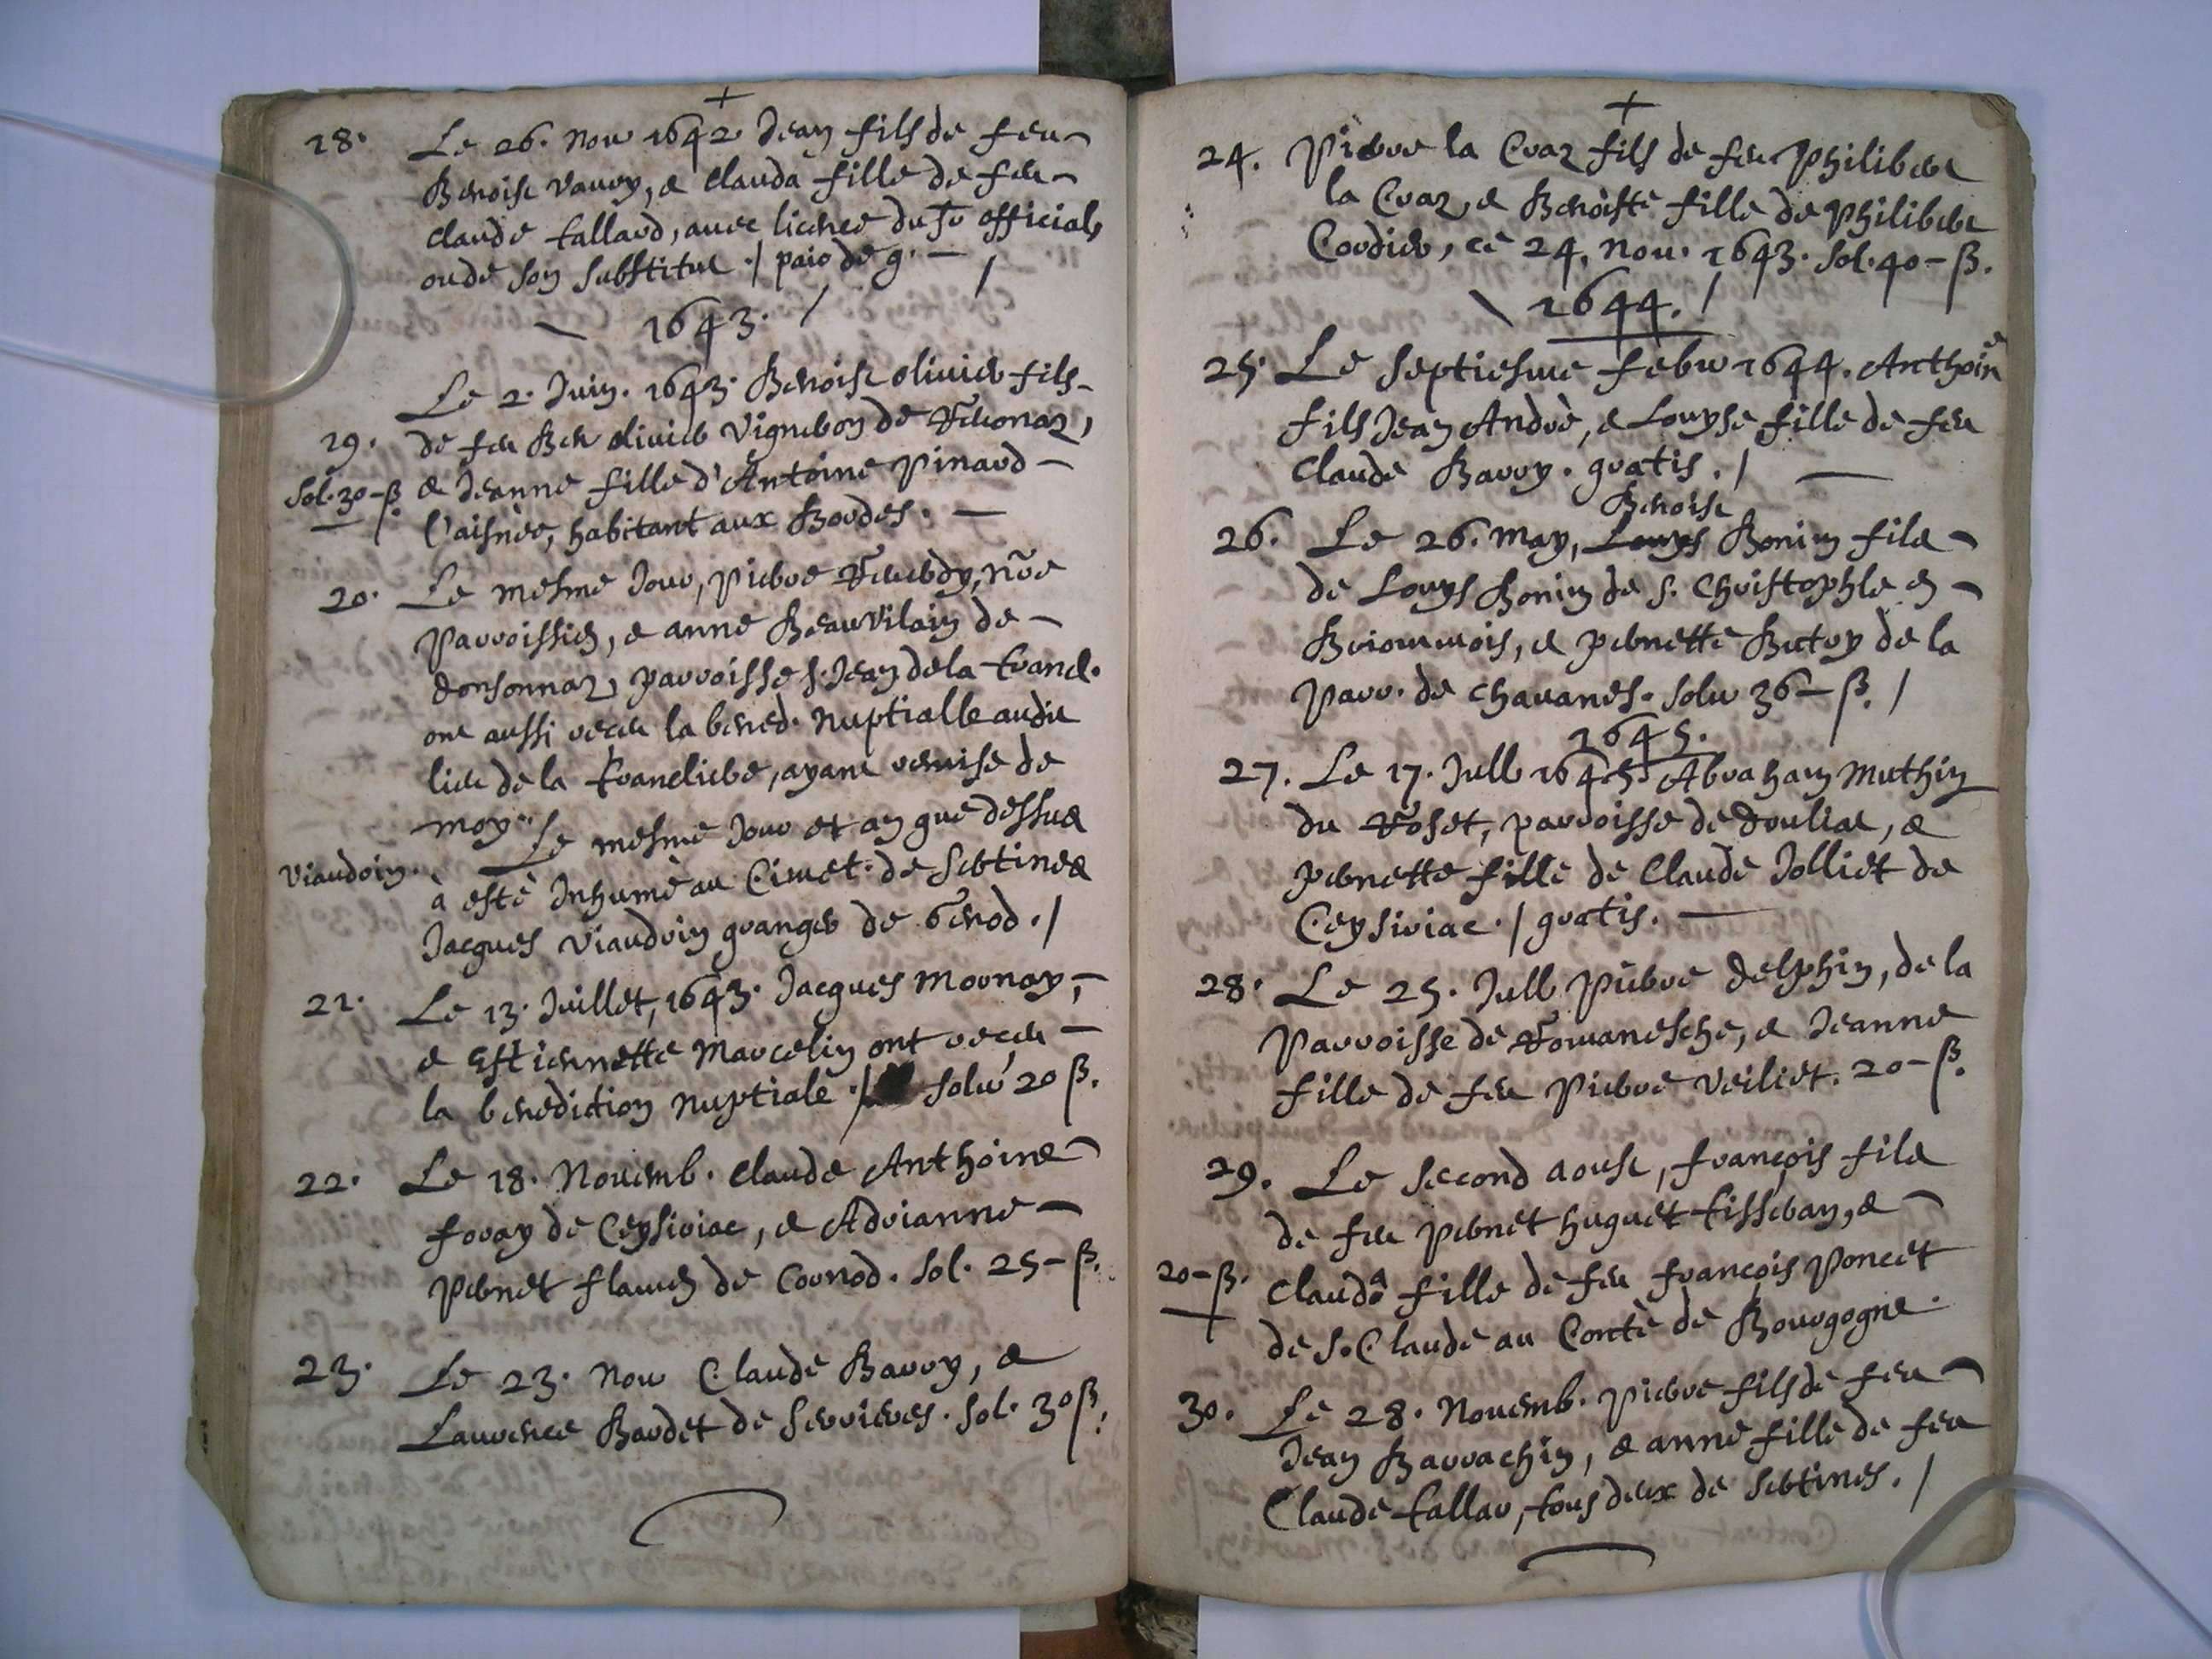 +
18. Le 26. Nov 1642 Jean fils de feu
Benoist Varey, & Clauda fille de feu
Claude Tallard, avec licence du Sr official,
ou de son substitut ./ paié de 9. —
1643.
Le 2. Juin. 1643. Benoist Olivier fils
19. de feu Ben Olivier Vigneron de
Sol. 30 – ß. & Jeanne fille d'Antoine Pinard –
l'aisnée, habitant aux Bordes. —
20. Le mesme Jour, Pierre nrẽ
Parroissien, & anne Beauvilain de –
Donsonnaz, parroisse S. Jean de la Trancl.
ont aussi receu la bened. Nuptialle audit
lieu de la Trancliere, ayant remise de
moy ./ Le mesme Jour et an que dessus
Viaudrin. à esté Inhumé au Cimet. de Sertines
Jacques Viaudrin granger de Genod ./
21. Le 13. Juillet, 1643. Jacques Mornay, –
& Estiennette Marcelin ont receu –
la benediction nuptiale ./ Solv 20 ß.
22. Le 18. Novemb. Claude Anthoine
foray de Ceysiriac, & Adrianne –
Pernet flamen de Cornod. Sol. 25 – ß.
23. Le 23. Nov Claude Barry, &
Laurence Bardet de Serrieres. Sol. 30 ß.
+
24. Pierre la Craz fils de feu Philibert
la Craz, & Benoiste fille de Philibert
Cordier, ce 24. Nov. 1643. Sol. 40 – ß.
1644. /
25. Le septiesme febvr 1644. Anthoine
fils Jean André, & Louyse fille de feu
Claude Barry. gratis. / —
Benoist
26. Le 26. May, Louys Bonin fils
de Louys Bonin de S. Christophle en –
Briounnois, & Pernette Buttoy de la
Parr. de Chavanes. Solv 36 – ß. /
1645.
27. Le 17. Jull 1645. Abraham Muthin
du Roset, parroisse de Douliat, &
Pernette fille de Claude Jolliet de
Ceysiriac ./ gratis. —
28. Le 25. Jull Pierre Delphin, de la
Parroisse de Romanesche, & Jeanne
fille de feu Pierre Veiliet. 20 – ß.
29. Le second aoust, françois fils
de feu Pernet huguet Tisseran, &
20 – ß. Clauda fille de feu françois Poncet
de S. Claude au Conté de Bourgogne.
30. Le 28. Novemb. Pierre fils de feu
Jean Barrachin, & anne fille de feu
Claude Tallar, tous deux de Sertines. /